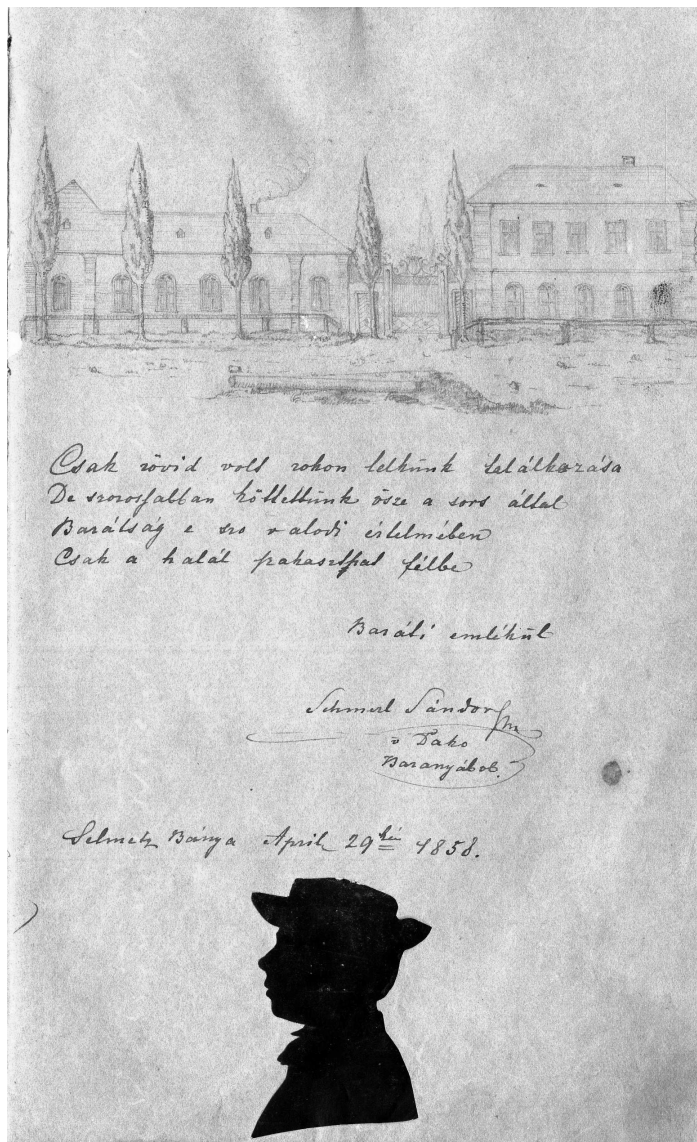 Csak rövid volt rokon lelkünk találkozása
De szorossabban köttettünk ösze a sors által
Barátság e szo valodi értelmében
Csak a halál szakaszthat félbe
Baráti emlékül
Schmerl Sándor
v Dako
Baranyából.
Selmetz Bánya April 29ké 1858.